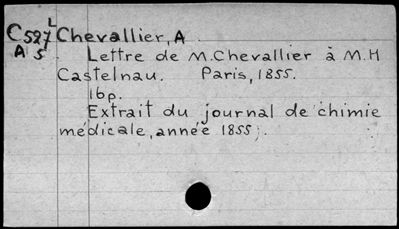 C527L Chevallier, A
A5 Lettre de M. Chevallier à M. H
Castelnau. Paris, 1855.
16p.
Extrait du journal de chimie
médicale, année 1855.